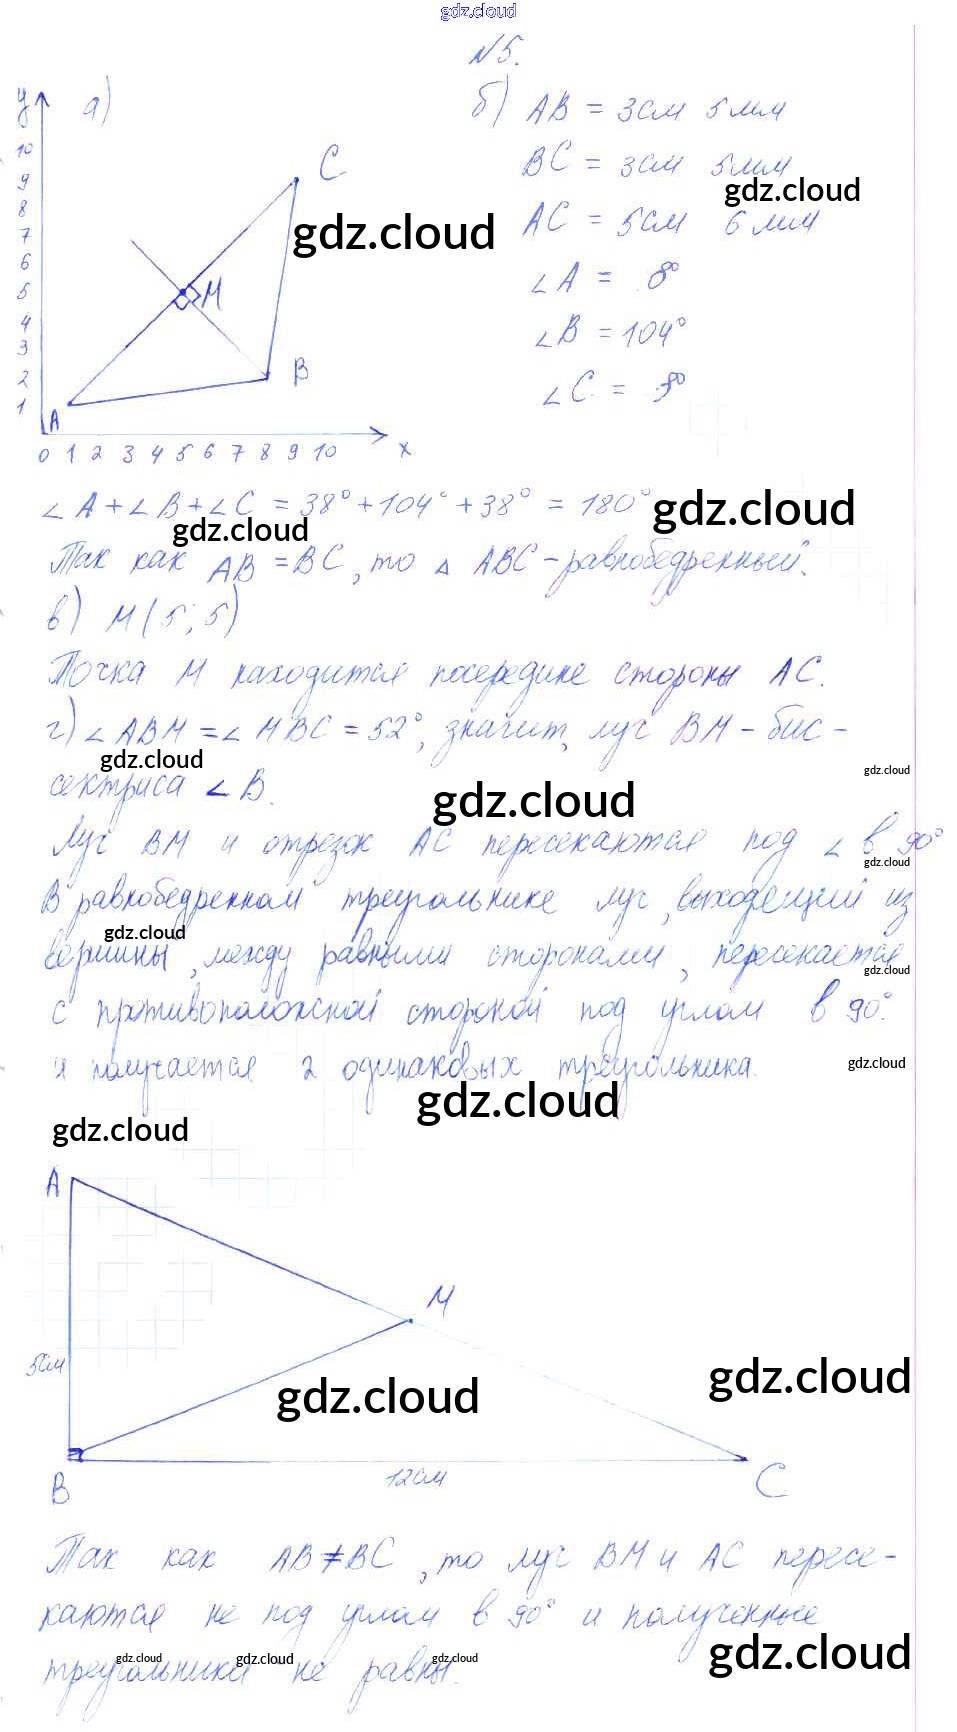 gdz.cloud
№5.
а)
б) AB = 3см 5мм
BC = 3см 5мм
gdz.cloud
AC = 5см 6мм
∠A = 8°
∠B = 104°
∠C = 8°
y
10
9
8
7
6
5
4
3
2
1
C
gdz.cloud
M
B
A
0 1 2 3 4 5 6 7 8 9 10 x
∠A+∠B+∠C = 38°+104°+38° = 180°
gdz.cloud
gdz.cloud
Так как AB = BC, то △ ABC - равнобедренный.
в) M(5;5)
Точка M находится посередине стороны AC.
г) ∠ABM = ∠MBC = 52°, значит, луч BM - бис-
gdz.cloud
gdz.cloud
сектриса ∠B.
gdz.cloud
Луч BM и отрезок AC пересекаются под ∠ в 90°
gdz.cloud
В равнобедренном треугольнике луч, выходящий из
gdz.cloud
вершины, между равными сторонами, пересекается
gdz.cloud
с противоположной стороной под углом в 90°.
и получается 2 одинаковых треугольника.
gdz.cloud
gdz.cloud
gdz.cloud
A
M
5см
gdz.cloud
gdz.cloud
B
12см
C
Так как AB ≠ BC, то луч BM и AC пересе-
каются не под углом в 90° и полученные
gdz.cloud
треугольники не равны.
gdz.cloud
gdz.cloud
gdz.cloud